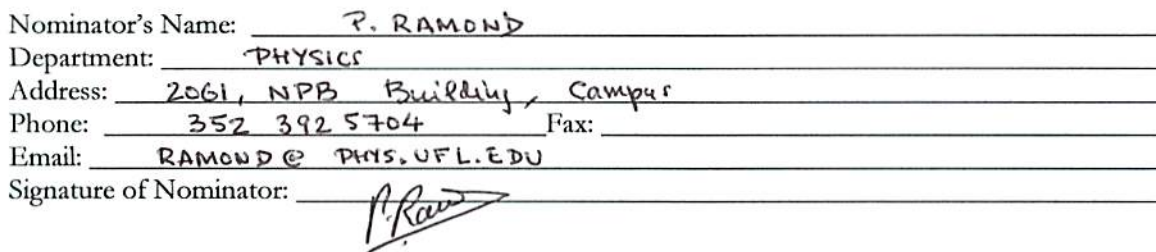 Nominator's Name: P. RAMOND
Department: PHYSICS
Address: 2061, NPB Building, Campus
Phone: 352 392 5704 Fax:
Email: RAMOND@ PHYS.UFL.EDU
Signature of Nominator: P. Ramond